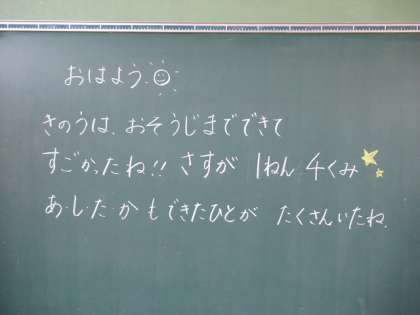 おはよう
きのうは、おそうじまでできて
すごかったね!! さすが 1ねん 4くみ
あ・し・た・か もできたひとが たくさんいたね.